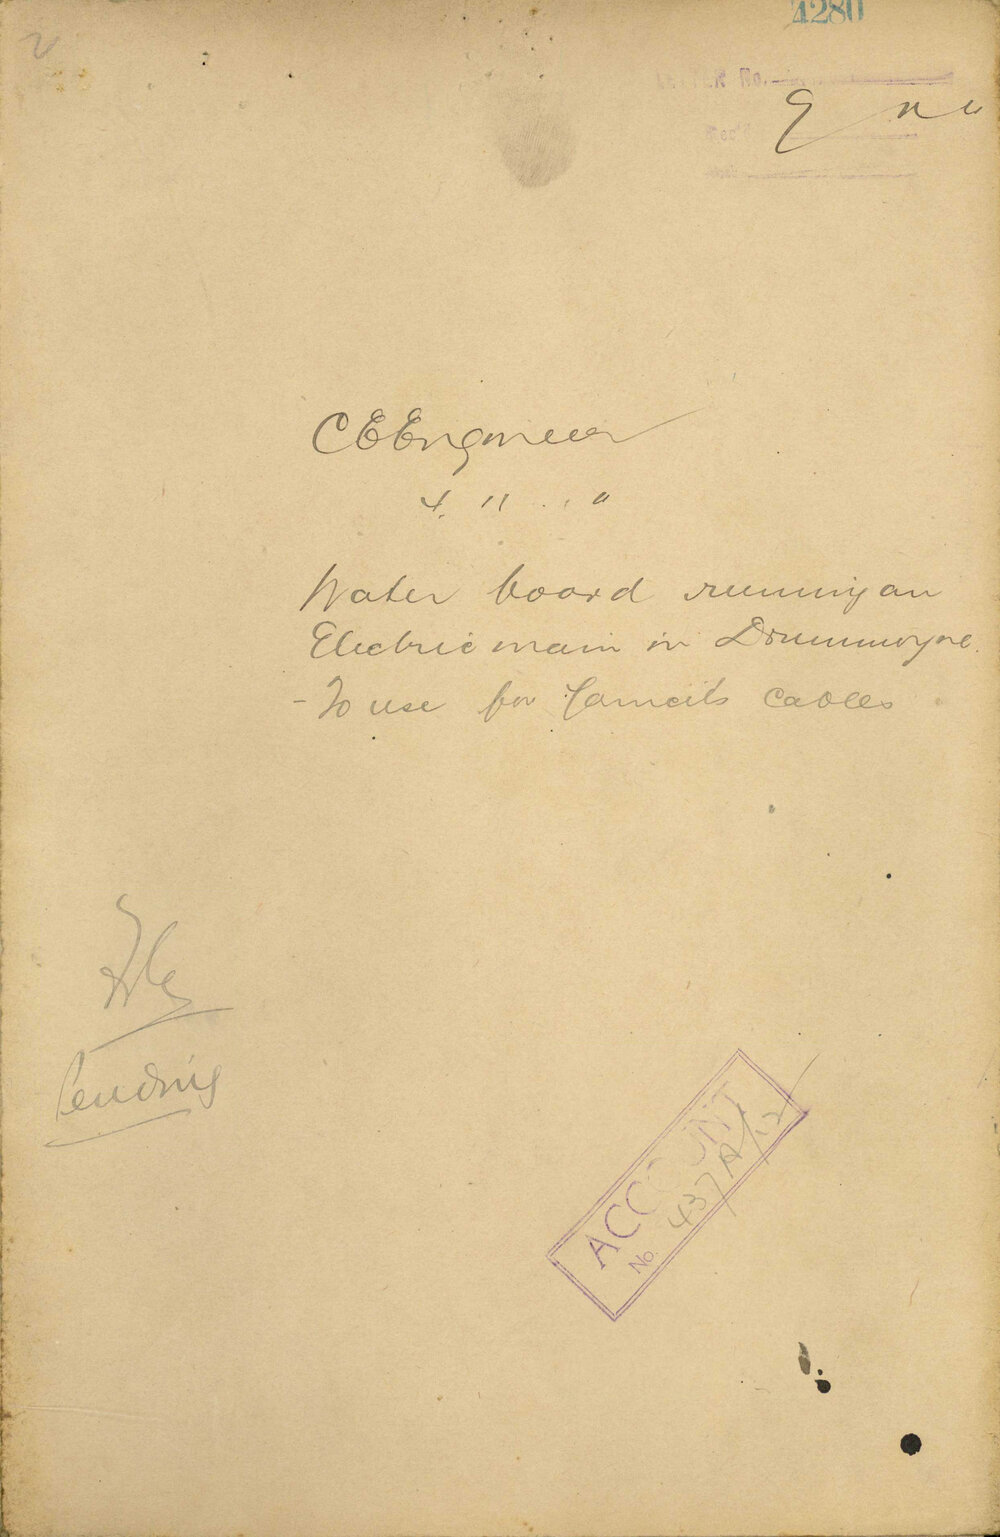 4280
No.
C E Engineer
4. 11
Water board running an
Electric main in Drummoyne.
- To use for Councils cables
Pending
ACCOUNT
No. 437A/12